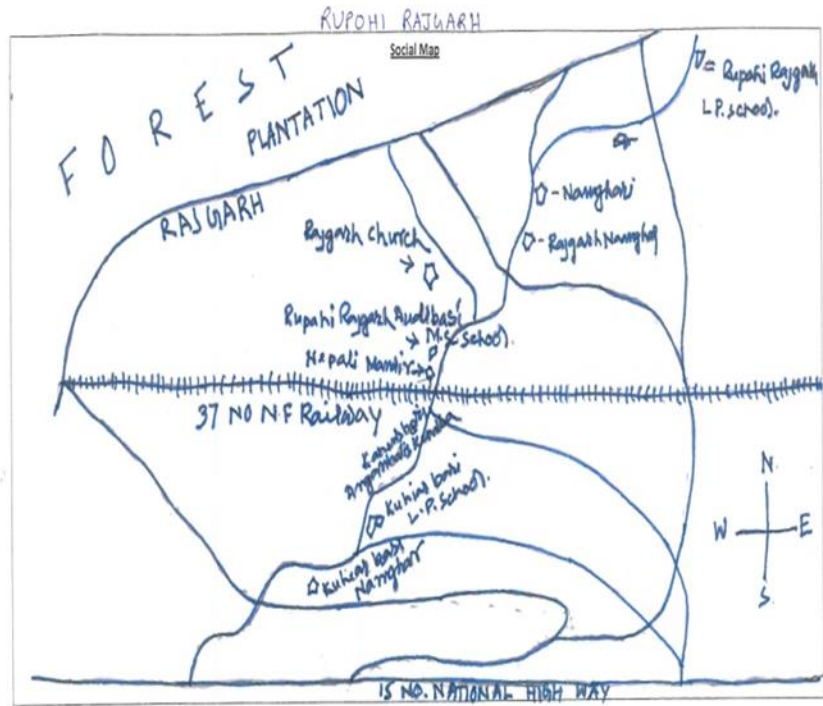 RUPOHI RAJGARH
Social Map
FOREST
PLANTATION
RAJGARH
= Rupahi Rajgarh
L.P. School.
- Namghari
- Rajgarh Namghar
Rajgarh Church
Rupahi Rajgarh Audibasi
M.E. School.
Nepali Mandir
37 NO N F Railway
Kuhiar bari
L.P. School.
Kuhiar bari
Namghar
N
W E
S
15 NO. NATIONAL HIGH WAY